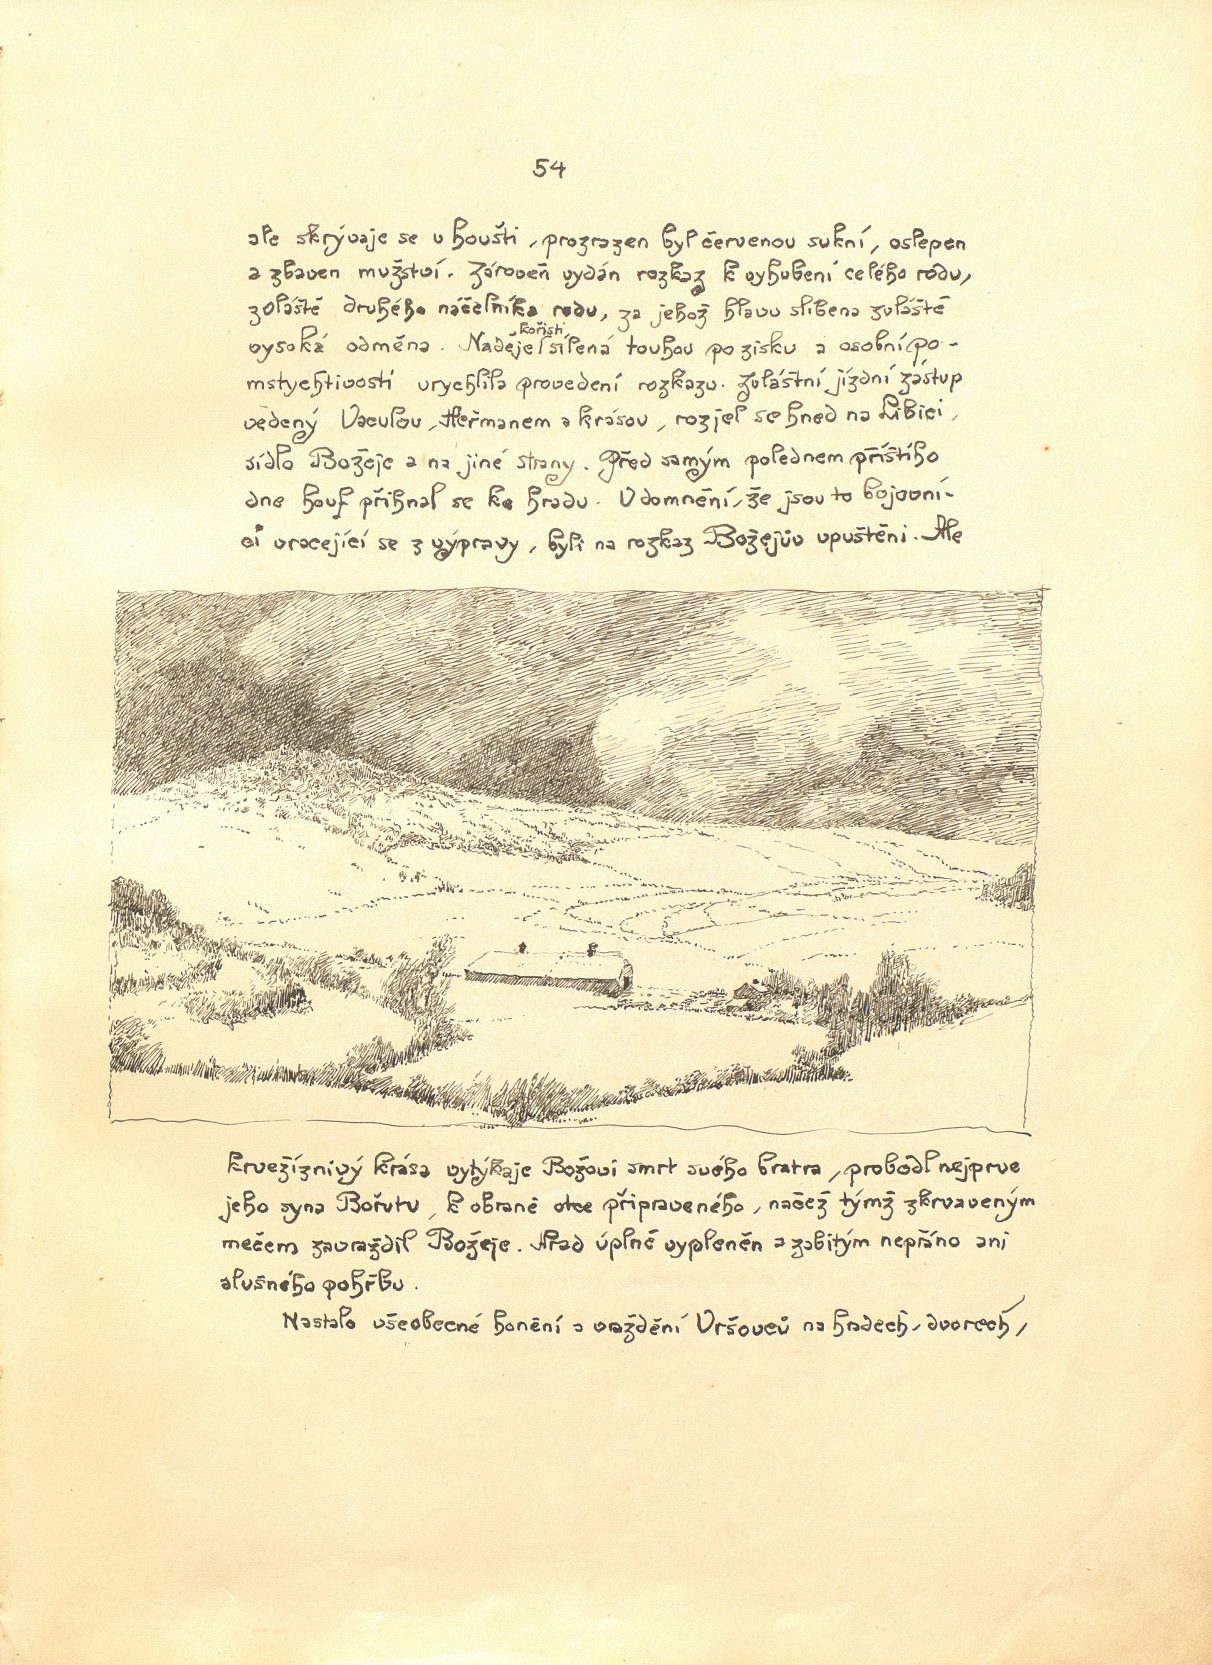 54
ale skrývaje se v houšti, prozrazen byl červenou sukní, oslepen
a zbaven mužství. Zároveň vydán rozkaz k vyhubení celého rodu,
zvláště druhého náčelníka rodu, za jehož hlavu slibena zvláště
vysoká odměna. Nadějel kořisti sílená touhou po zisku a osobní po-
mstychtivostí urychlila provedení rozkazu. Zvláštní jízdní zástup
vedený Vaculou, Heřmanem a krásou, rozjel se hned na Libici,
sídlo Božeje a na jiné strany. Před samým polednem příštího
dne houf přihnal se ke hradu. V domnění, že jsou to bojovní-
ci vracející se z výpravy, byli na rozkaz Božejův vpuštěni. Ale
krvežíznivý krása vytýkaje Božovi smrt svého bratra, probodl nejprve
jeho syna Bořutu, k obraně otce připraveného, načež týmž zkrvaveným
mečem zavraždil Božeje. Hrad úplně vypleněn a zabitým nepřáno ani
slušného pohřbu.
Nastalo všeobecné honění a vraždění Vršovců na hradech, dvorech,